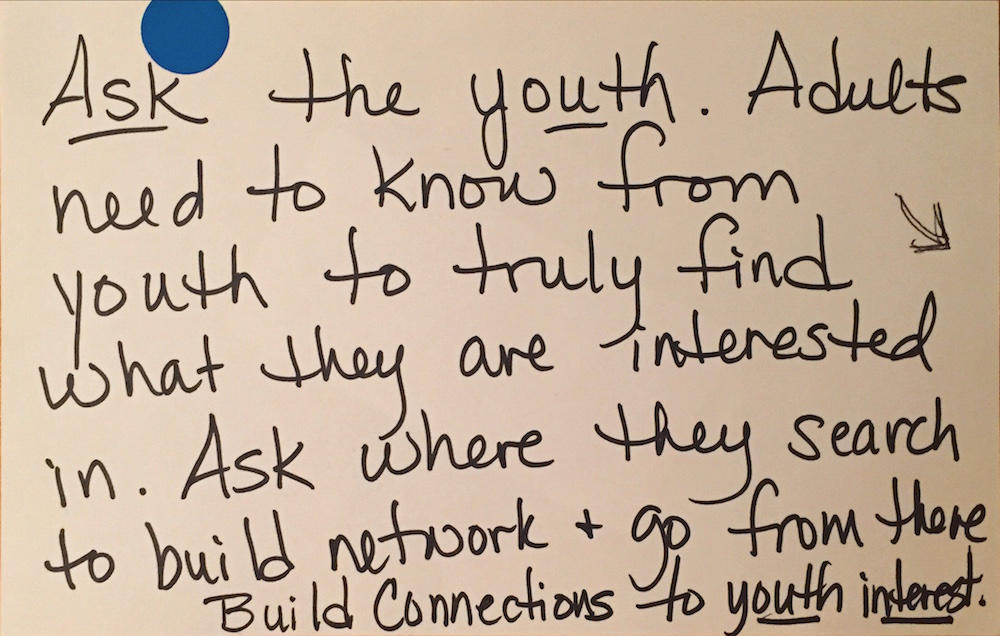 Ask the youth. Adults
need to know from
youth to truly find
what they are interested
in. Ask where they search
to build network + go from there
Build Connections to youth interest.